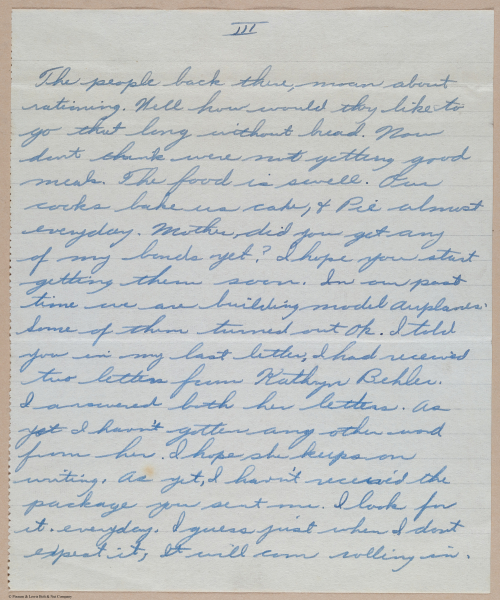 III
The people back there, moan about
rationing. Well how would they like to
go that long without bread. Now
dont think were not getting good
meals. The food is swell. Our
cooks bake us cake, & Pie almost
everyday. Mother, did you get any
of my bonds yet? I hope you start
getting them soon. In our past
time we are building model airplanes.
Some of them turned out Ok. I told
you in my last letter, I had received
two letters from Kathryn Behler.
I answered both her letters. As
yet I havn't gotten any other word
from her. I hope she keeps on
writing. As yet, I havn't received the
package you sent me. I look for
it everyday. I guess just when I dont
expect it, It will com rolling in.